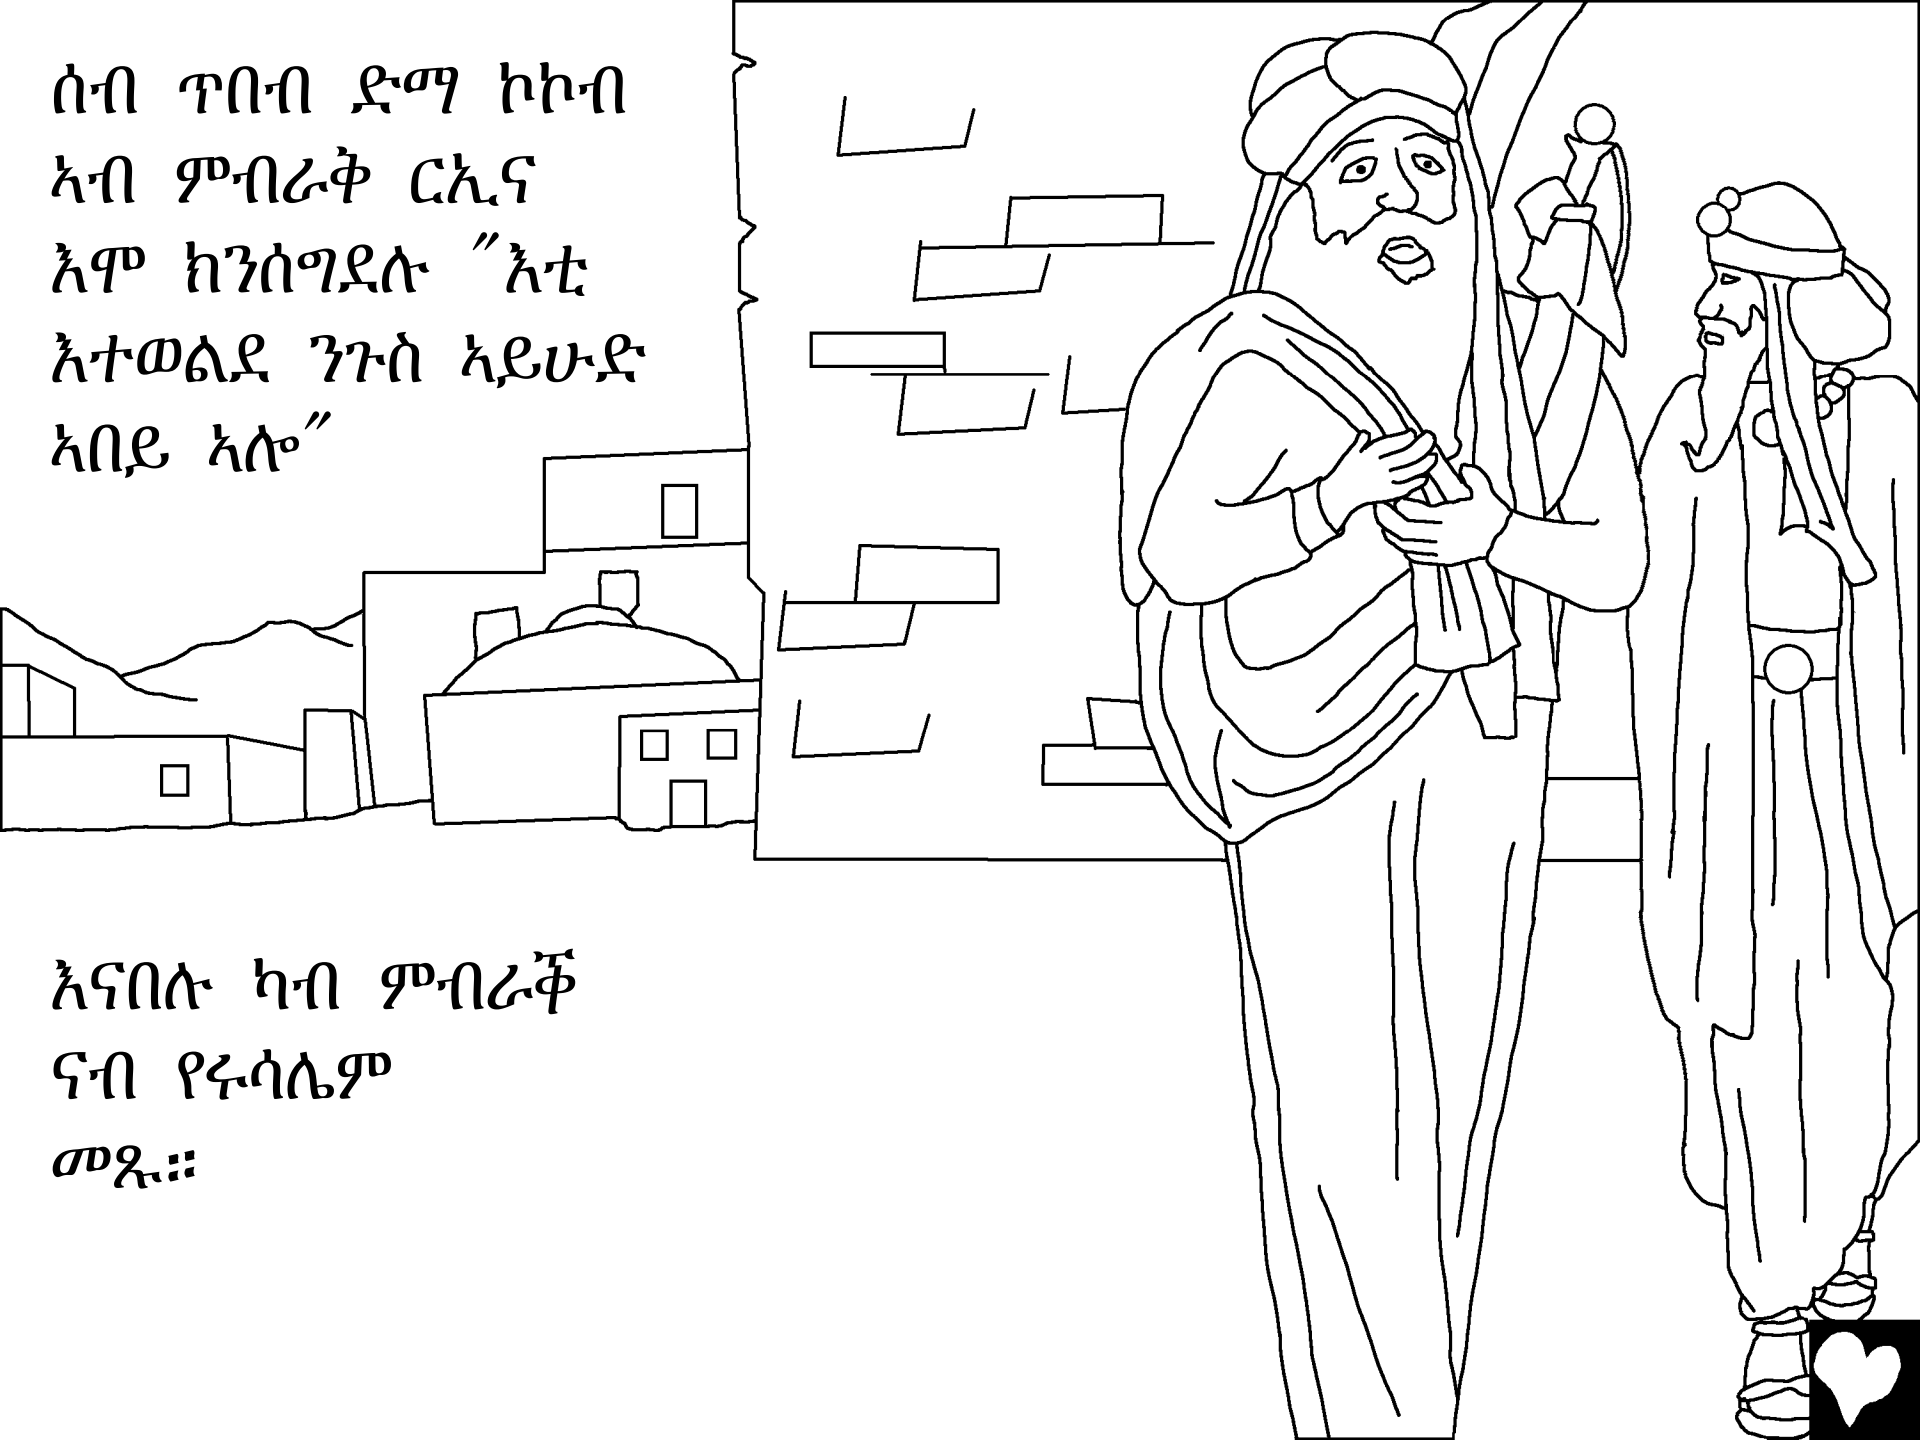 ሰብ ጥበብ ድማ ኮኮብ
ኣብ ምብራቅ ርኢና
እሞ ክንሰግደሉ "እቲ
እተወልደ ንጉስ ኣይሁድ
ኣበይ ኣሎ"
እናበሉ ካብ ምብራቕ
ናብ የሩሳሌም
መጹ።